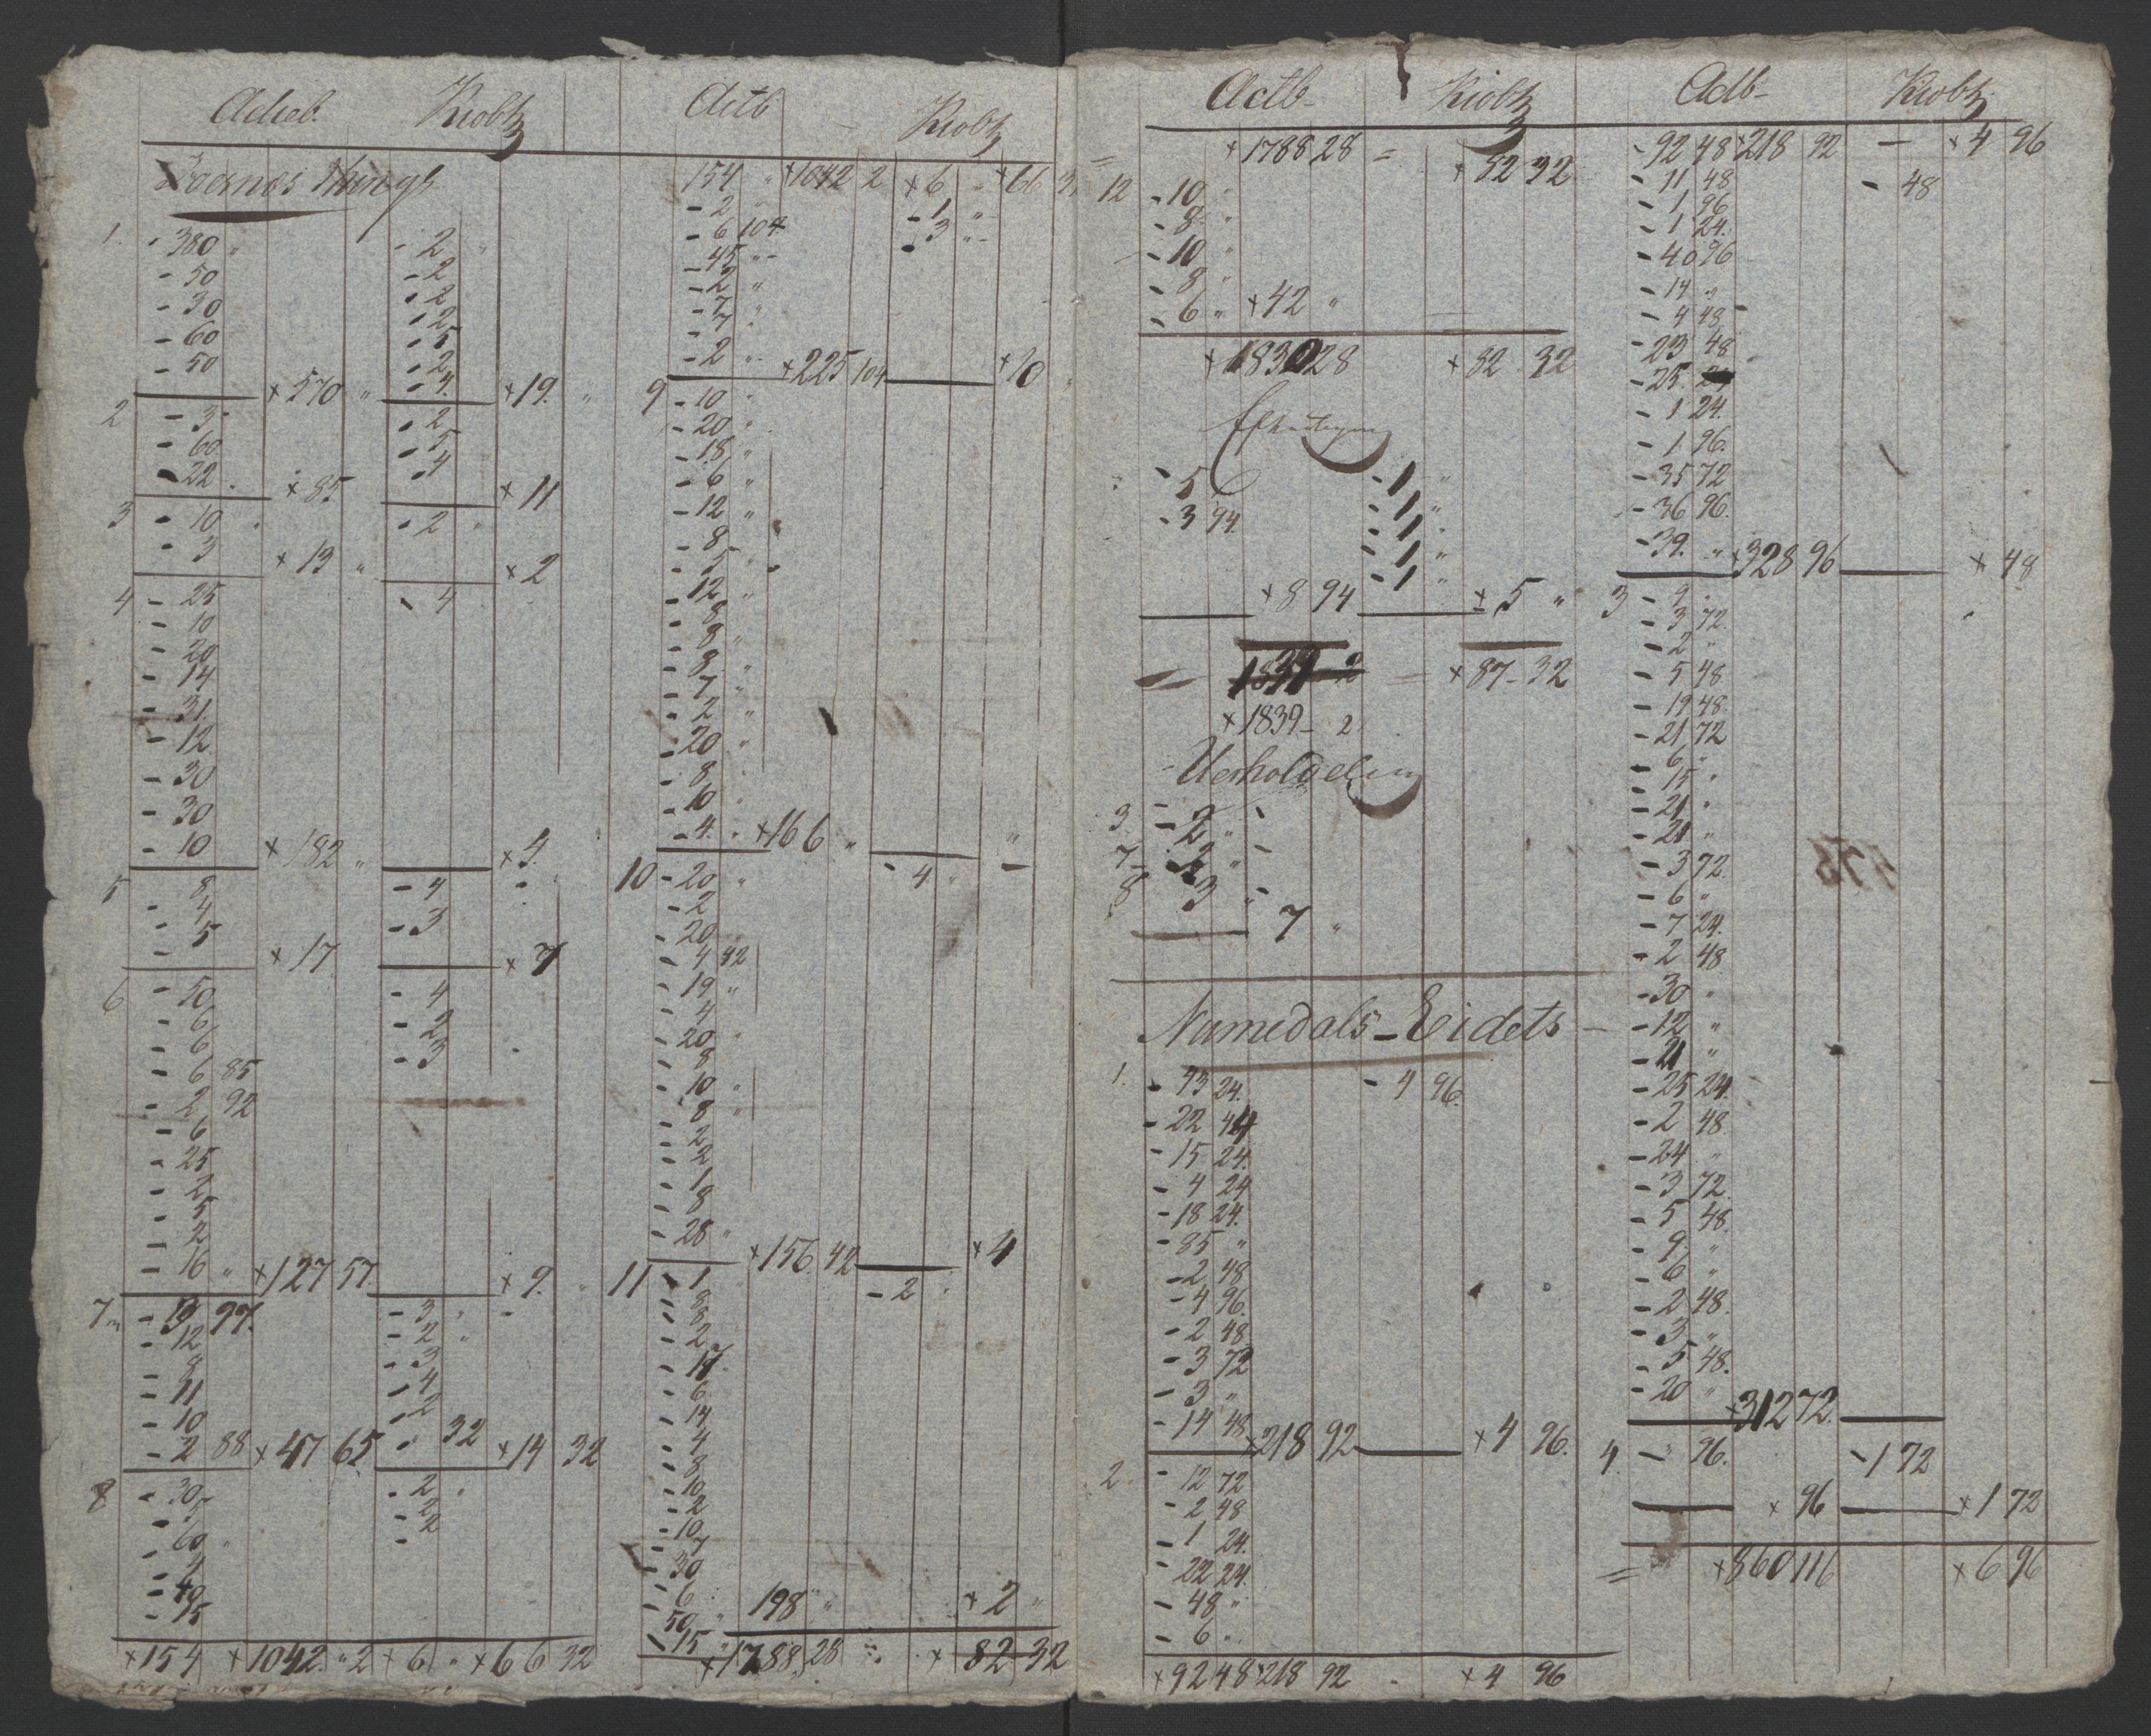 Kiøbtz
Actb
Kiøbtz
1. - 380 " - 2 "
- 50 - 2
- 30 - 2
- 60 - 2
- 50 - 5
- 2
x 570 " - 4 x 19. "
2 - 3 - 2
- 60 - 5
- 22 . - 4
x 85 x 11
3 - 10 - 2 "
- 3 x 13 " x 2
4 - 25 - 4
- 10
- 20
- 14
- 31
- 12
- 30
- 30
- 10 x 182 " x 4.
5 - 8 - 4
- 4 - 3
- 5 x 17 x 7
6 - 50 - 4
- 6 - 2
- 6 - 3
- 6 85
- 2 92
- 6
- 25
- 2
- 5
- 2
- 16 " x 127 57 x 9. "
7 - 3 97. - 3 "
- 12 - 2 "
- 8 - 3
- 11 - 4
- 10 - 2
- 2 88 x 47 65 - " 32 x 14 32
8 - 30 - 2 "
- 5 - 2
- 60 - 2
- 4
- 40
- 15
x 154 x 1042 " 2 x 6 " x 66 32
154 " x 1042 2 x 6 " x 66 32
- 2 - 1 "
- 6 104 - 3 "
- 45 "
- 2 "
- 7 "
- 7 "
- 2 " x 225 104 x 10 "
9 - 10 "
- 20 "
- 18 "
- 6 "
- 12 "
- 8
- 5 "
- 12 "
- 8
- 8 "
- 8 "
- 7 "
- 2 "
- 20 "
- 8 "
- 10 "
- 4. " x 166 " "
10 - 20 " - 4 "
- 2
- 20
- 4 42
- 19 "
- 4
- 20 "
- 8
- 10 "
- 8
- 2
- 2
- 1
- 8
- 28 " x 156. 42 x 4
11 - 1 - 2 "
- 8
- 8
- 2
- 11
- 6
- 14
- 4
- 8
- 10
- 2
- 10
- 7
- 30
- 6
50 " 198 " x 2 "
- 15 " x 1788. 28 x 82 32
Actb-
Kiøbtz
Adb-
Kiøbtz
= x 1788 28 = x 82 32
12 - 10 "
- 8 "
- 10 "
- 8 "
- 6 " x 42 "
x 1830 28 x 82 32
- 5 - 1 "
- 3 94. - 1 "
- 1 "
- 1 "
- 1 "
x 8 94 x 5 "
x 87 - 32
x 1839 - 2.
3 - 2 " -
7 - 2 " -
8 3 " -
7 "
Namedals - Eidets -
1. - 73 24. - 4 96.
- 22 44
- 15 24.
- 4 24
- 18 24.
- 35 "
- 2 48
- 4 96.
- 2 48
- 3 72
- 3 "
- 14 48 x 218 92 x 4 96.
2. - 12 72
- 2 48
- 1 24.
- 22 24.
- 48 "
- 6 "
x 92 48 x 218 92 x 4 96
- 92 48 x 218 92 - x 4 96
- 11 48 - 48
- 1 96
- 1 24.
- 40 96
- 14 "
- 4 48
- 23 48
- 25.
- 1 24.
- 1 96.
- 35 72
- 36 96.
- 39. " x 328 96 x 48
3 - 9 "
- 3 72.
- 2 "
- 5 48
- 19 48.
- 21 72
- 6 "
- 15 "
- 21 "
- 21 "
- 3 72.
- 6 "
- 7 24.
- 2 48
- 30 "
- 12 "
- 21 "
- 25 24.
- 2 48
- 24 "
- 3 72.
- 5 48.
- 9 "
- 6 "
- 2 48.
- 3 "
- 5 48.
- 20 " x 312 72
4. - " 96. - 1 72
x 96 x 1 72
= x 860 116 x 6 96